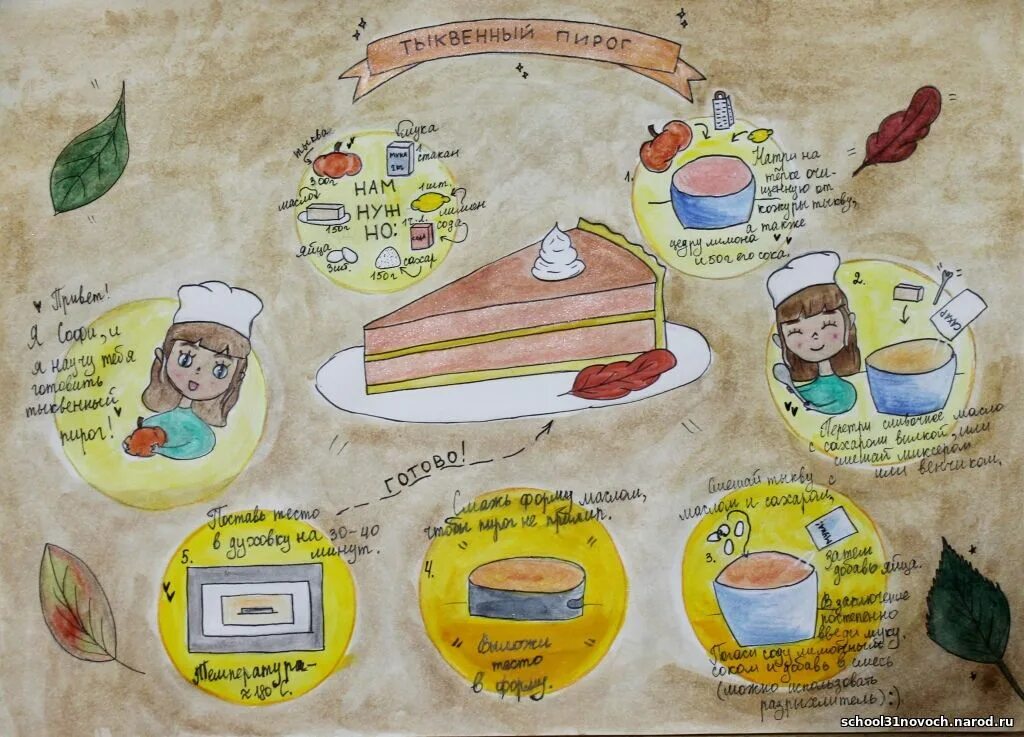 ТЫКВЕННЫЙ ПИРОГ
тыква
300г
мука
мука
1 стакан
масло
150г
НАМ
НУЖ
НО:
1 шт.
лимон
сода
яйца
3шт.
150г
сахар
1.
Натри на
тёрке очи-
щенную от
кожуры тыкву,
а также
цедру лимона
и 50г его сока.
Привет!
Я Софи, и
я научу тебя
готовить
тыквенный
пирог!
2.
САХАР
Перетри сливочное масло
с сахаром вилкой, или
смешай миксером
или венчиком.
Смешай тыкву с
маслом и сахаром,
3.
затем
добавь яйца.
В заключение
постепенно
введи муку.
Погаси соду лимонным
соком и добавь в смесь
(можно использовать
разрыхлитель) :)
Смажь форму маслом,
чтобы пирог не прилип.
4.
Выложи
тесто
в форму.
Поставь тесто
в духовку на 30-40
минут.
5.
Температура-
≈180°C.
ГОТОВО!
school31novoch.narod.ru